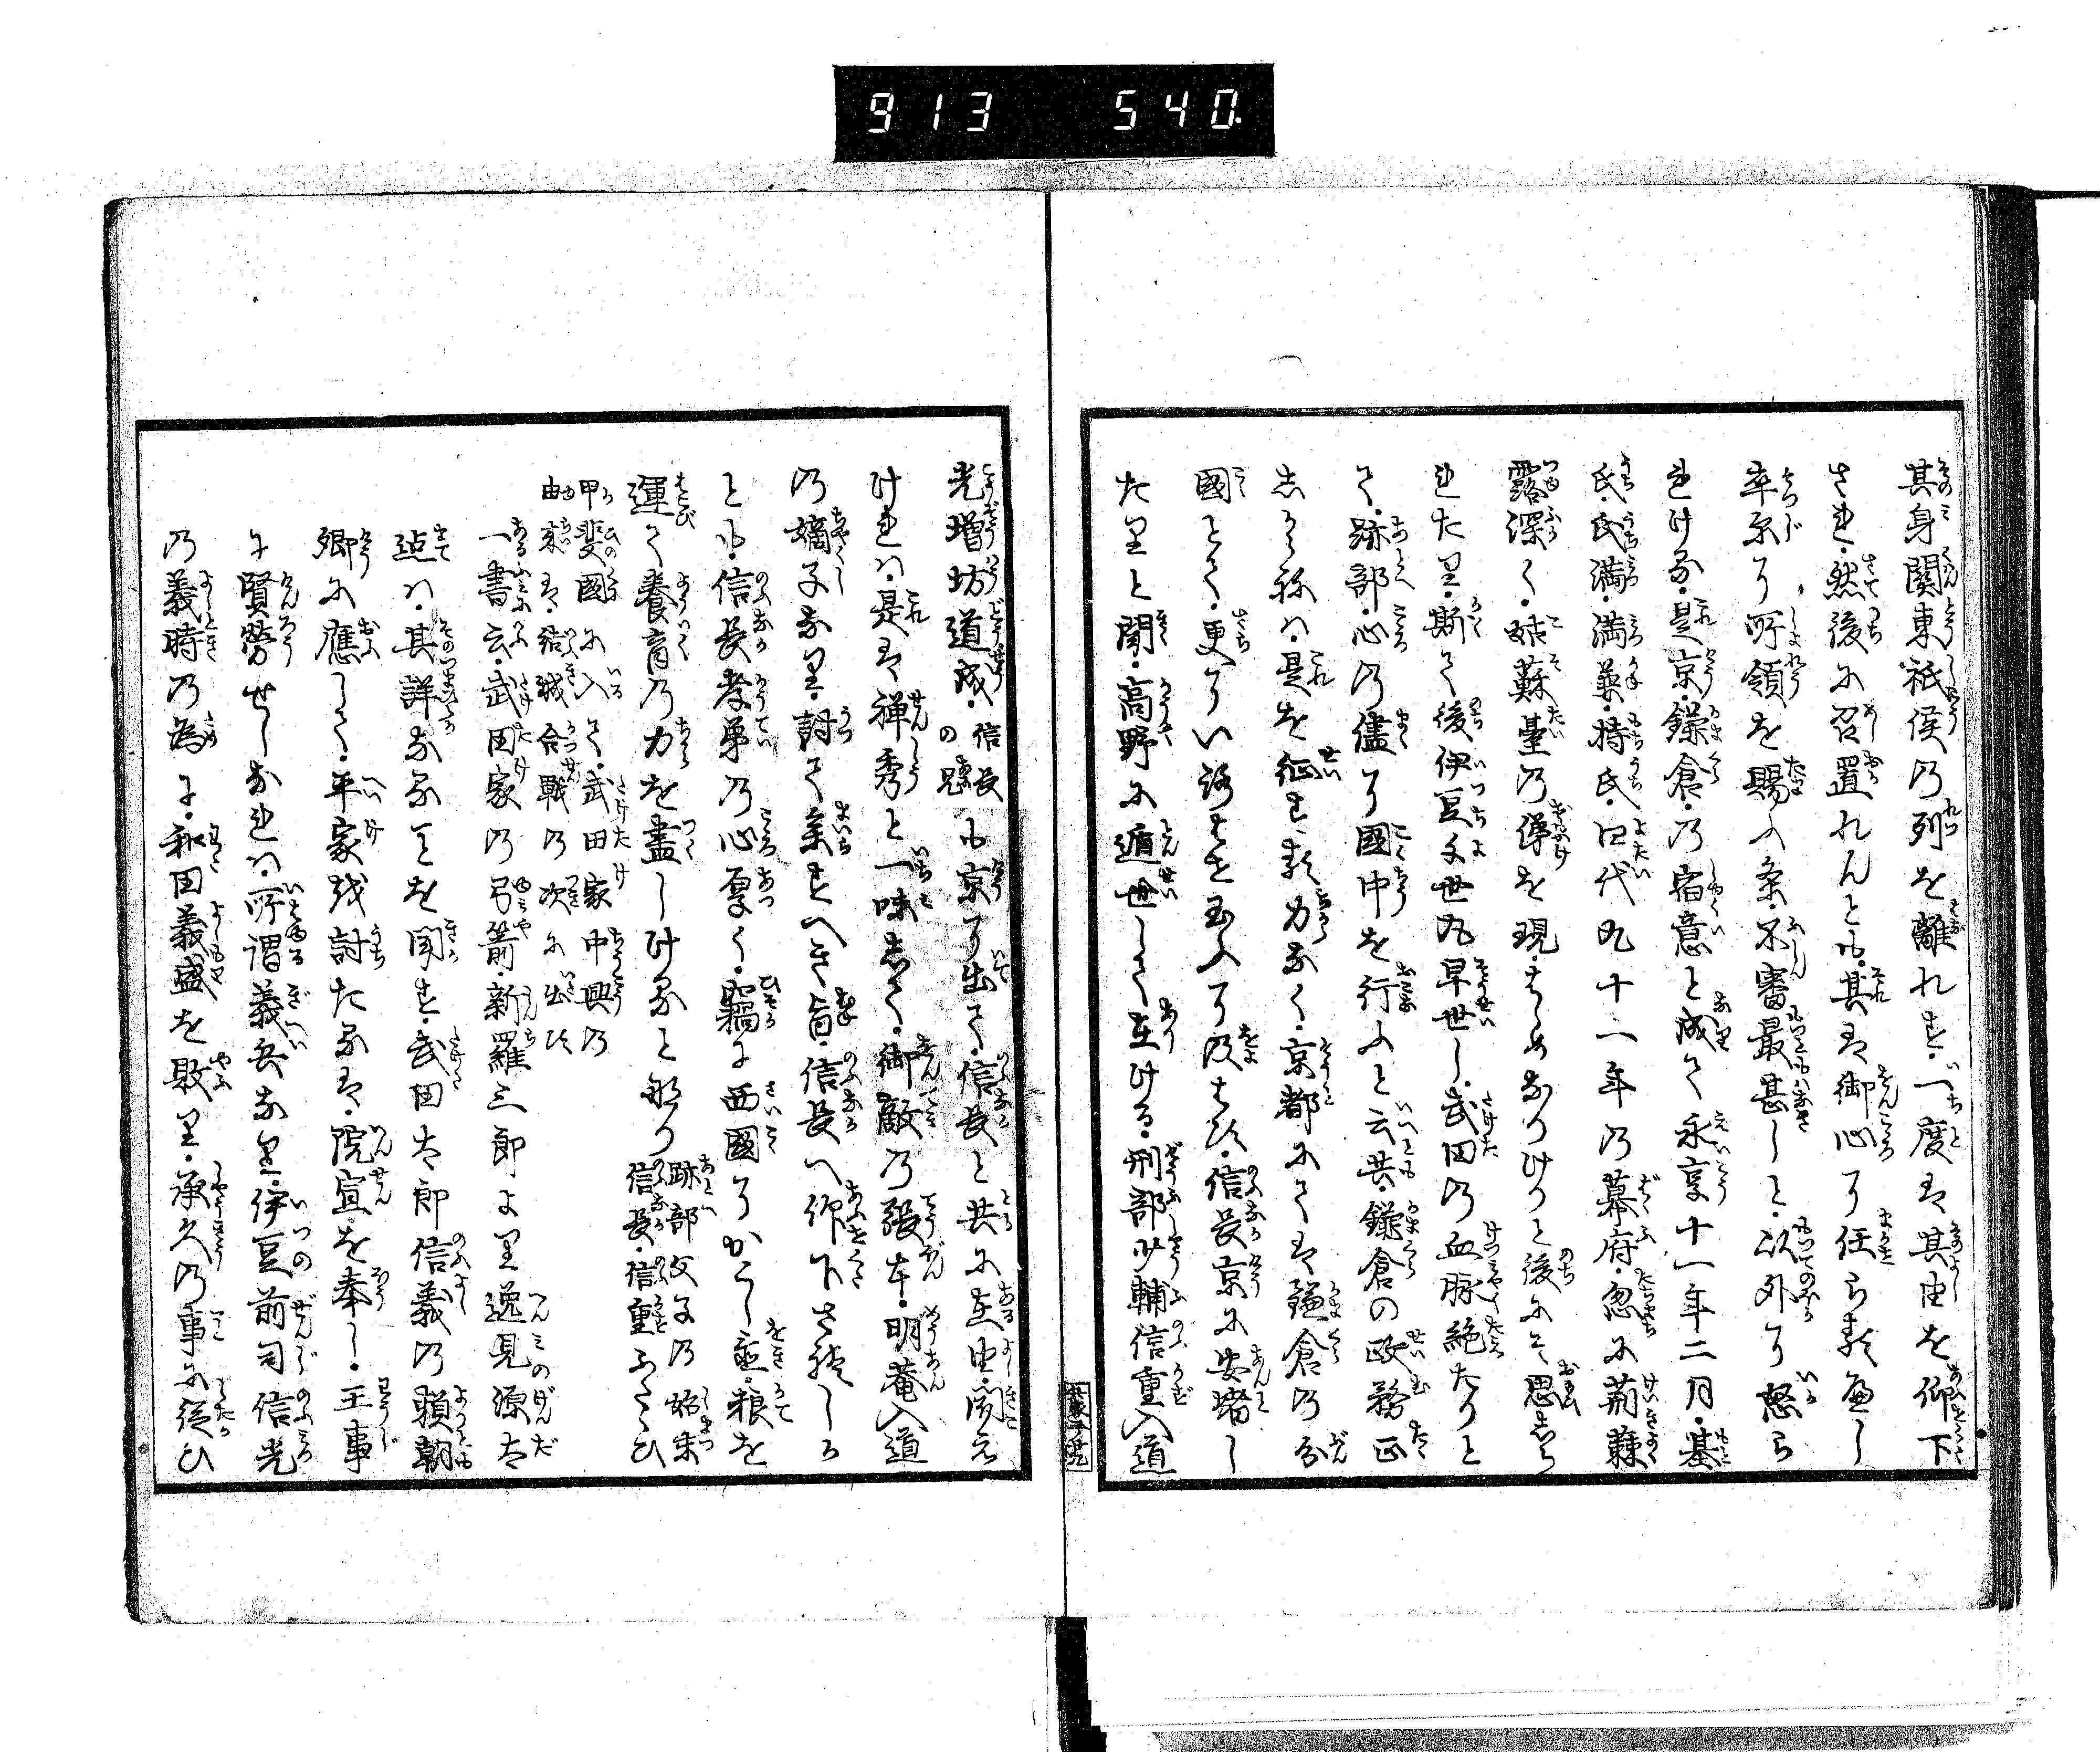 913 540.
其身關東祇侯の列を離れす一度は其由を仰下
され然後に召置れんとも其は御心に任らるへし
卒尓に所領を賜ふ条不審最甚しと以外に怒ら
れける是京鎌倉の宿意と成て永享十一年二月基
氏氏満満兼持氏四代九十一年の幕府忽に荊蕀
露深く姑蘇臺の俤を現はすめなりけりと後にそ思しら
れたり斯て後伊豆千世丸早世し武田の血脉絶たりと
て跡部心の儘に國中を行ふと云共鎌倉の政務正
しからねは是を征する力なく京都にても鎌倉の分
國とて更にいろはせ玉ふに及はす信長京に安堵し
たりと聞高野に遁世して在ける刑部少輔信重入道
光増坊道成信長の兄も京に出て信長と共に在由聞え
けれは是は禅秀と一味して御敵の張本明菴入道
の嫡子なり討て参すへき旨信長へ仰下されしか
とも信長孝弟の心厚く竊に西國にかくし置粮を
運て養育の力を盡しけると聞り跡部父子の始末信長信重ふたゝひ
甲斐國に入て武田家中興の由来は結城合戰の次に出す
一書云武田家の弓箭新羅三郎より逸見源太
迠は其詳なることを聞す武田太郎信義の頼朝
卿に應して平家を討たるは院宣を奉し王事
に賢勞せしなれは所謂義兵なり伊豆前司信光
の義時の為に和田義盛を敗り承久の事に従ひ